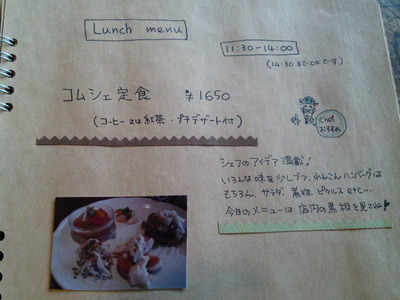 Lunch menu
11:30-14:00
(14:30までOKです)
コムシェ定食 ¥1650
(コーヒー又は紅茶・プチデザート付)
Chef
おすすめ
シェフのアイデア満載!
いろんな味を少しづつ、れんこんハンバーグは
もちろん、サラダ、煮物、ピクルスetc…
今日のメニューは店内の黒板を見てね